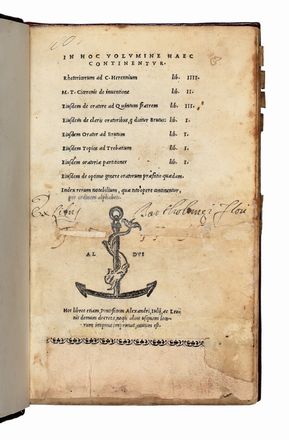 IN HOC VOLVMINE HAEC
CONTINENTVR.
Rhetoricorum ad C. Herennium lib. IIII.
M. T. Ciceronis de inuentione lib. II.
Eiusdem de oratore ad Quintum fratrem lib. III.
Eiusdem de claris oratoribus, qui dicitur Brutus: lib. I.
Eiusdem Orator ad Brutum lib. I.
Eiusdem Topica ad Trebatium lib. I.
Eiusdem oratoriae partitiones lib. I.
Eiusdem de optimo genere oratorum praefatio quaedam.
Index rerum notabilium, quae toto opere continentur,
per ordinem alphabeti.
Ex Libris Bartholomei
AL DVS
Hos libros etiam, Pontificum Alexandri, Iulij, ac Leo
nis demum decreto, nequis alius usquam loco
rum impune imprimat, cautum est.